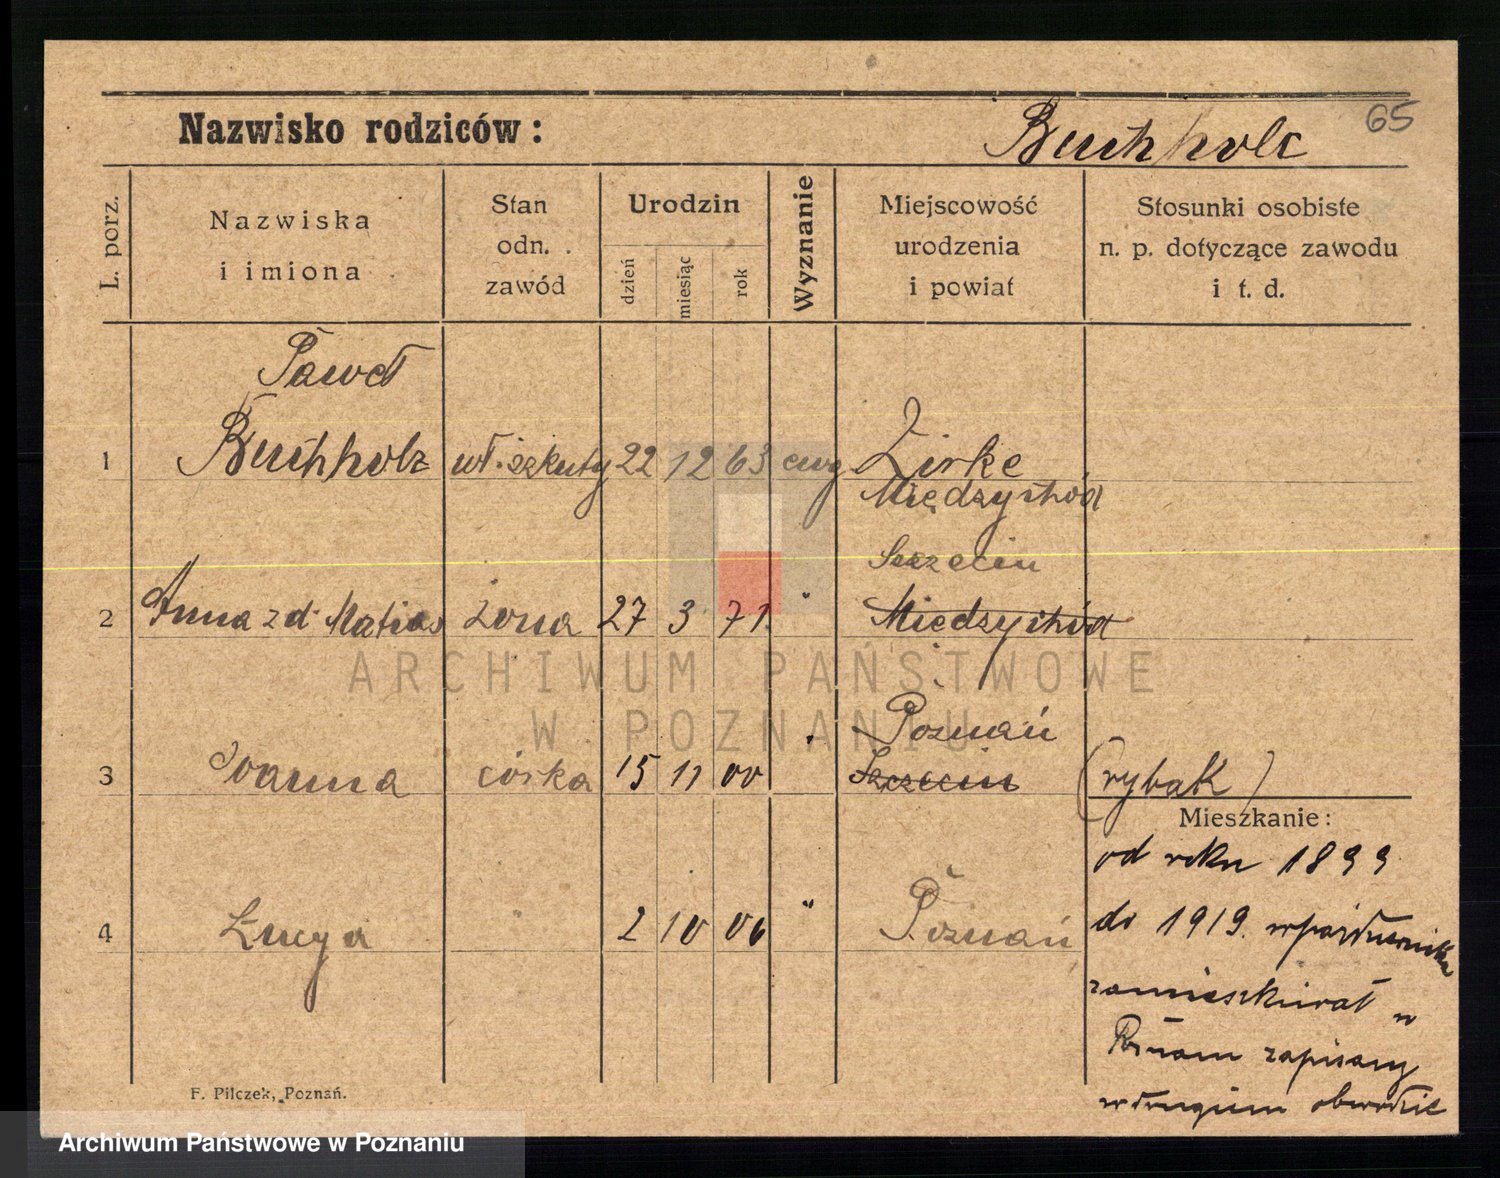 65
Nazwisko rodziców: Buchholc
L. porz.
Nazwiska
i imiona
Stan
odn.
zawód
Urodzin
dzień
miesiąc
rok
Wyznanie
Miejscowość
urodzenia
i powiat
Stosunki osobiste
n. p. dotyczące zawodu
i t. d.
Paweł
1 Buchholz wł. szkuty 22 12 63 ewg Zirke
Międzychód
Szczecin
2 Anna z d. Matias żona 27 3 71 " Międzychód
Poznań
3 Joanna córka 15 11 00 " Szczecin (rybak)
Mieszkanie:
od roku 1899
4 Łucya " 2 10 06 " Poznań
do 1919. w październiku
zamieszkiwał w
Poznaniu zapisany
w drugim obwodzie
F. Pilczek, Poznań.
ARCHIWUM PAŃSTWOWE
W POZNANIU
Archiwum Państwowe w Poznaniu